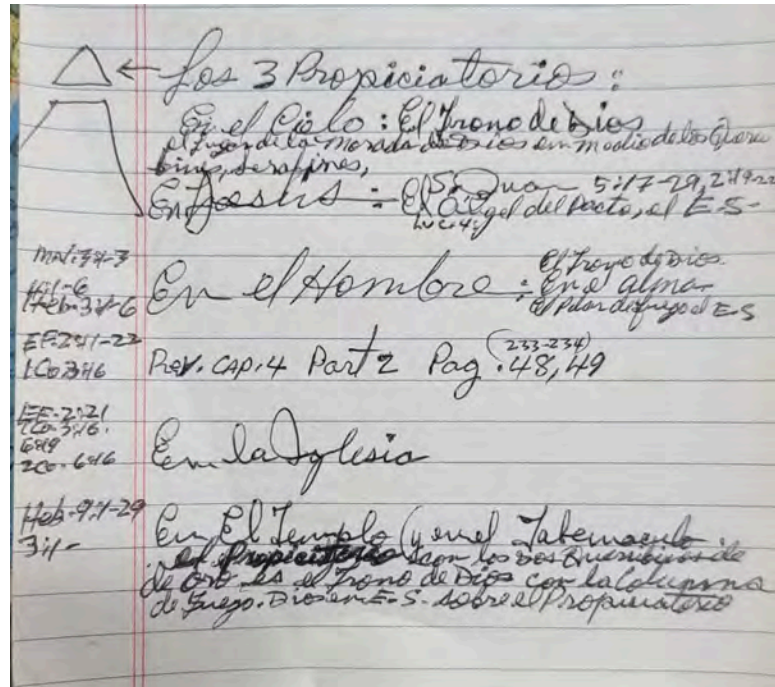 ← Los 3 Propiciatorios:
En el Cielo: El Trono de Dios
el lugar de la Morada de Dios en medio de los Queru
bines, Serafines,
En Jesus: S. Juan 5:17-29, 2:19-22
El Angel del Pacto, el E-S-
Luc. 4:
El Trono de Dios.
En el Hombre: En el alma
El Pilar de fuego el E-S
Heb. 3:1-6
EF-2:11-22
1Co 3:16
Rev. CAP. 4 Part 2 Pag. 48,49
(233-234)
EF-2:21
1Co-3:16.
6:19
2Co-6:16
En la Iglesia
Heb-9:1-29
3:1-
En El Templo (y en el Tabernaculo
el Propiciatorio con los dos Querubines de
de oro es el Trono de Dios con la Columna
de Fuego. Dios en E-S- sobre el Propiciatorio